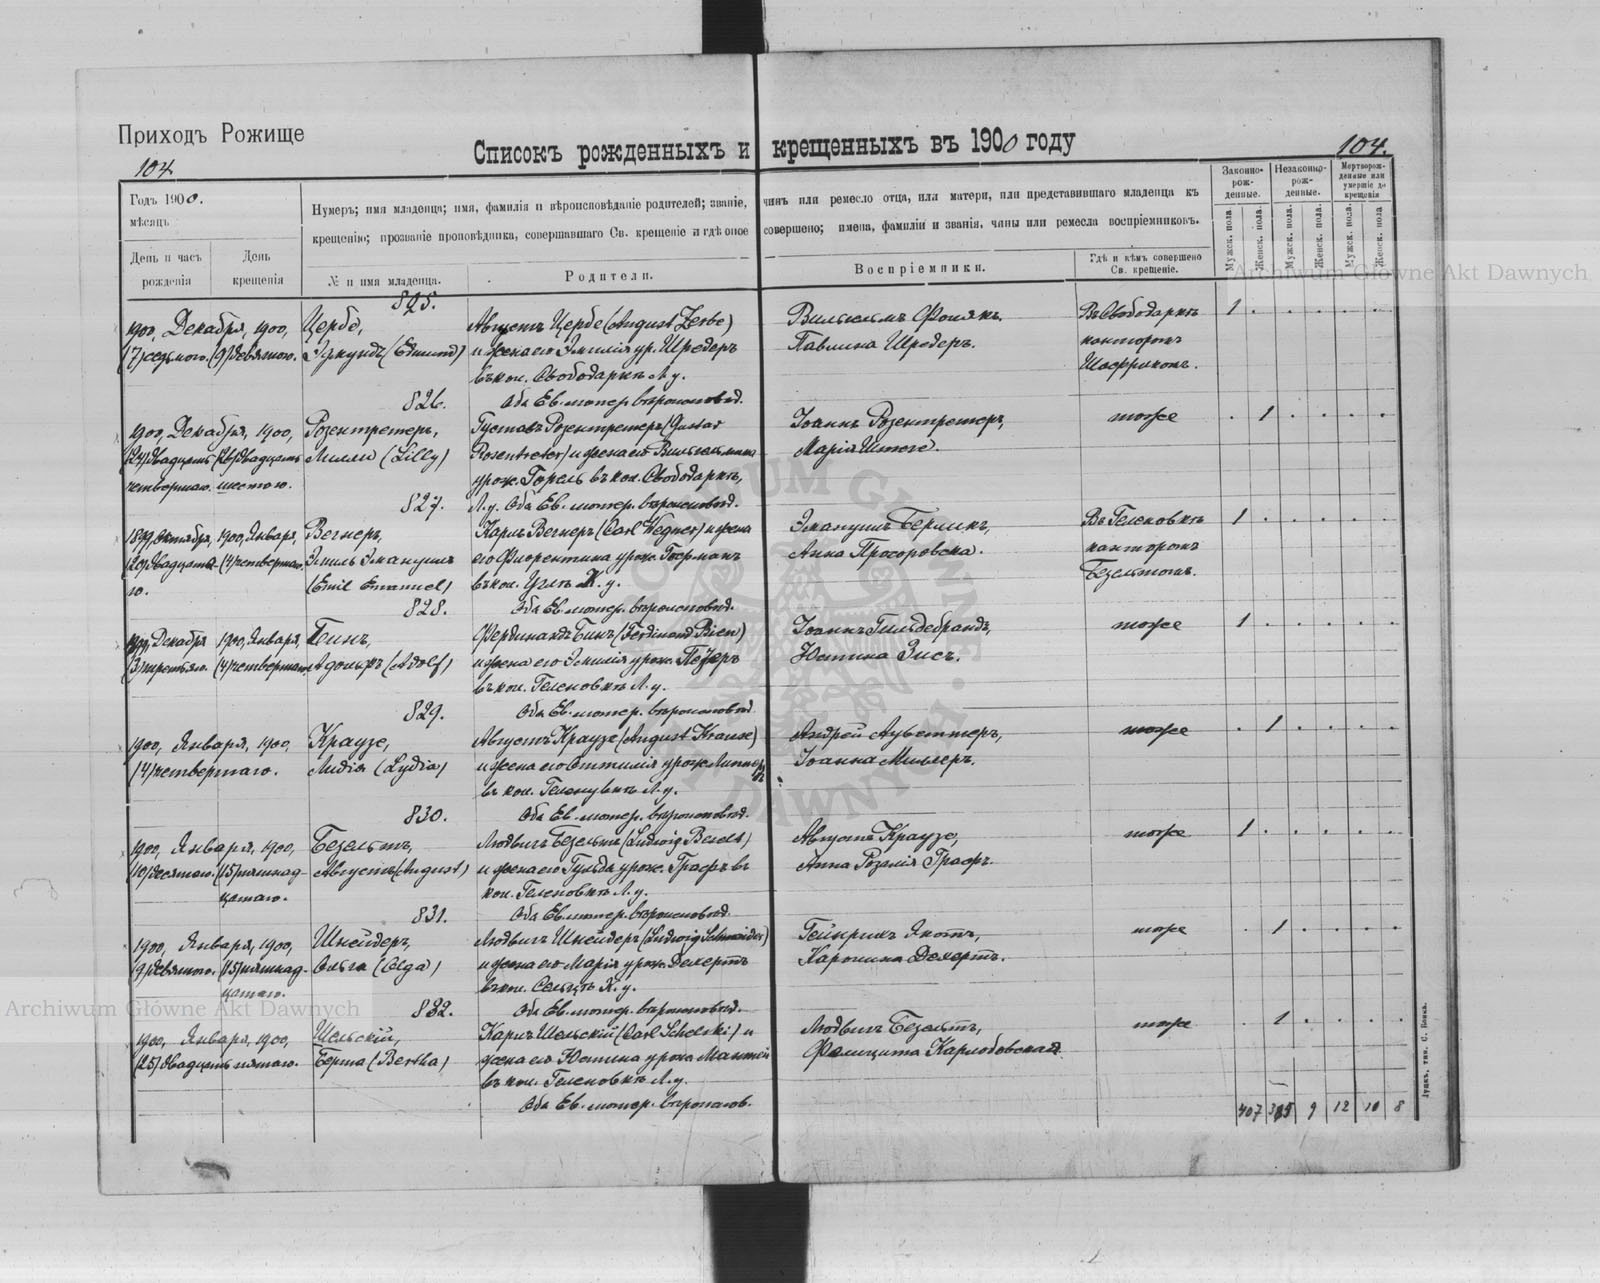 Приходъ Рожище
Списокъ рожденныхъ и крещенныхъ въ 1900 году
104
104.
Годъ 1900.
мѣсяцъ
День и часъ рожденія
День крещенія
Нумеръ; имя младенца; имя, фамилія и вѣроисповѣданіе родителей; званіе, чинъ или ремесло отца, или матери, или представившаго младенца къ
крещенію; прозваніе проповѣдника, совершавшаго Св. крещеніе и гдѣ оное совершено; имена, фамиліи и званія, чины или ремесла воспріемниковъ.
№ и имя младенца.
Родители.
Воспріемники.
Гдѣ и кѣмъ совершено Св. крещеніе.
Законно-рож-денные.
Незаконно-рож-денные.
Мертворож-денные или умершіе до крещенія
Мужск. пола
Женск. пола.
Мужск. пола.
Женск. пола.
Мужск. пола.
Женск. пола
Archiwum Główne Akt Dawnych
825.
1900, Декабря, 1900,
(7) седьмого. (9) девятого.
Цербе,
Эдмундъ (Edmund)
Августъ Цербе (August Zerbe)
и жена его Эмилія ур. Шредеръ
въ кол. Свободаркѣ Л. у.
Оба Ев. лютер. вѣроисповѣд.
Вильгельмъ
Павлина Шредеръ.
Въ Свободаркѣ
канторомъ
1
826.
1900, Декабря, 1900,
(24) двадцать (26) двадцать
четвертаго. шестого.
Розентретеръ,
Лилли (Lilly)
Густавъ Розентретеръ (Gustav
Rosentreter) и жена его Вильгельмина
урож. Горель въ кол. Свободаркѣ,
Л. у. Оба Ев. лютер. вѣроисповѣд.
Іоаннъ Розентретеръ,
Марія
тоже
1
827.
1899, Октября, 1900, Января,
(20) двадцата- (4) четвертаго.
го.
Вегнеръ,
Эмиль Эмануилъ
(Emil Emanuel)
Карлъ Вегнеръ (Carl Wegner) и жена
его Флорентина урож. Гофманъ
въ кол. У. у.
Оба Ев. лютер. вѣроисповѣд.
Эмануилъ Берликъ,
Анна Просоровска.
Въ Геленовкѣ
канторомъ
Безельтомъ.
1
828.
Декабря 1900, Января,
(3) третьяго. (4) четвертаго.
Бинъ,
Адольфъ (Adolf)
Фердинандъ Бинъ (Ferdinand Bien)
и жена его Эмилія урож.
въ кол. Геленовкѣ Л. у.
Оба Ев. лютер. вѣроисповѣд.
Іоаннъ Гильдебрандъ,
Юстина Зисъ.
тоже
1
829.
1900, Января, 1900,
(4) четвертаго.
Краузе,
Лидія (Lydia)
Августъ Краузе (August Krause)
и жена его Оттилія урож.
въ кол. Геленувкѣ Л. у.
Оба Ев. лютер. вѣроисповѣд.
Андрей
Іоанна Миллеръ.
тоже
1
830.
1900, Января, 1900,
(10) десятаго. (15) пятнад-
цатаго.
Безельтъ,
Августъ (August)
Людвигъ Безельтъ (Ludwig Beselt)
и жена его Гульда урож. Графъ въ
кол. Геленовкѣ Л. у.
Оба Ев. лютер. вѣроисповѣд.
Августъ Краузе,
Анна Розалія Графъ.
тоже
1
831.
1900, Января, 1900,
(9) девятого. (15) пятнад-
цатаго.
Шнейдеръ,
Ольга (Olga)
Людвигъ Шнейдеръ (Ludwig Schneider)
и жена его Марія урож. Дехертъ
въ кол. Сельцѣ К. у.
Оба Ев. лютер. вѣроисповѣд.
Гейнрихъ
Каролина Дехертъ.
тоже
1
832.
1900, Января, 1900,
(25) двадцать пятаго.
Шельскій,
Берта (Bertha)
Карлъ Шельскій (Carl Schelski) и
жена его Юстина урож. Мантей
въ кол. Геленовкѣ Л. у.
Оба Ев. лютер. вѣроисповѣд.
Людвигъ Безельтъ,
Фелицита Карлобовская.
тоже
1
407 9 12 10 8
Archiwum Główne Akt Dawnych